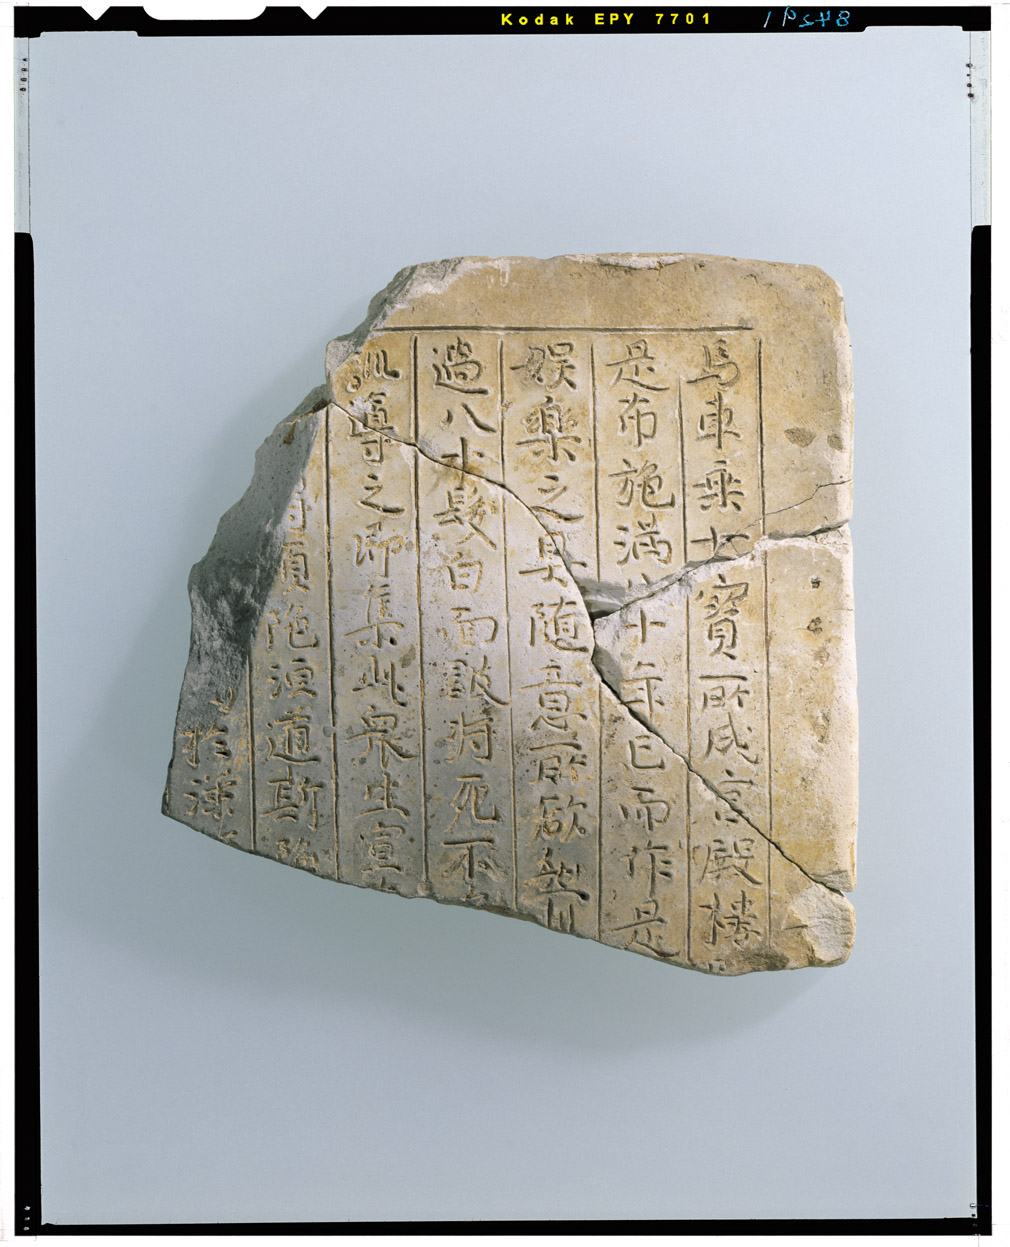 Kodak EPY 7701
馬車乘七寶所成宮殿樓
是布施満八十年已而作是
娯樂之具随意所欲然
過八十髮白面皺將死不
訓導之即集此衆生宣
須陀洹道斯
於深